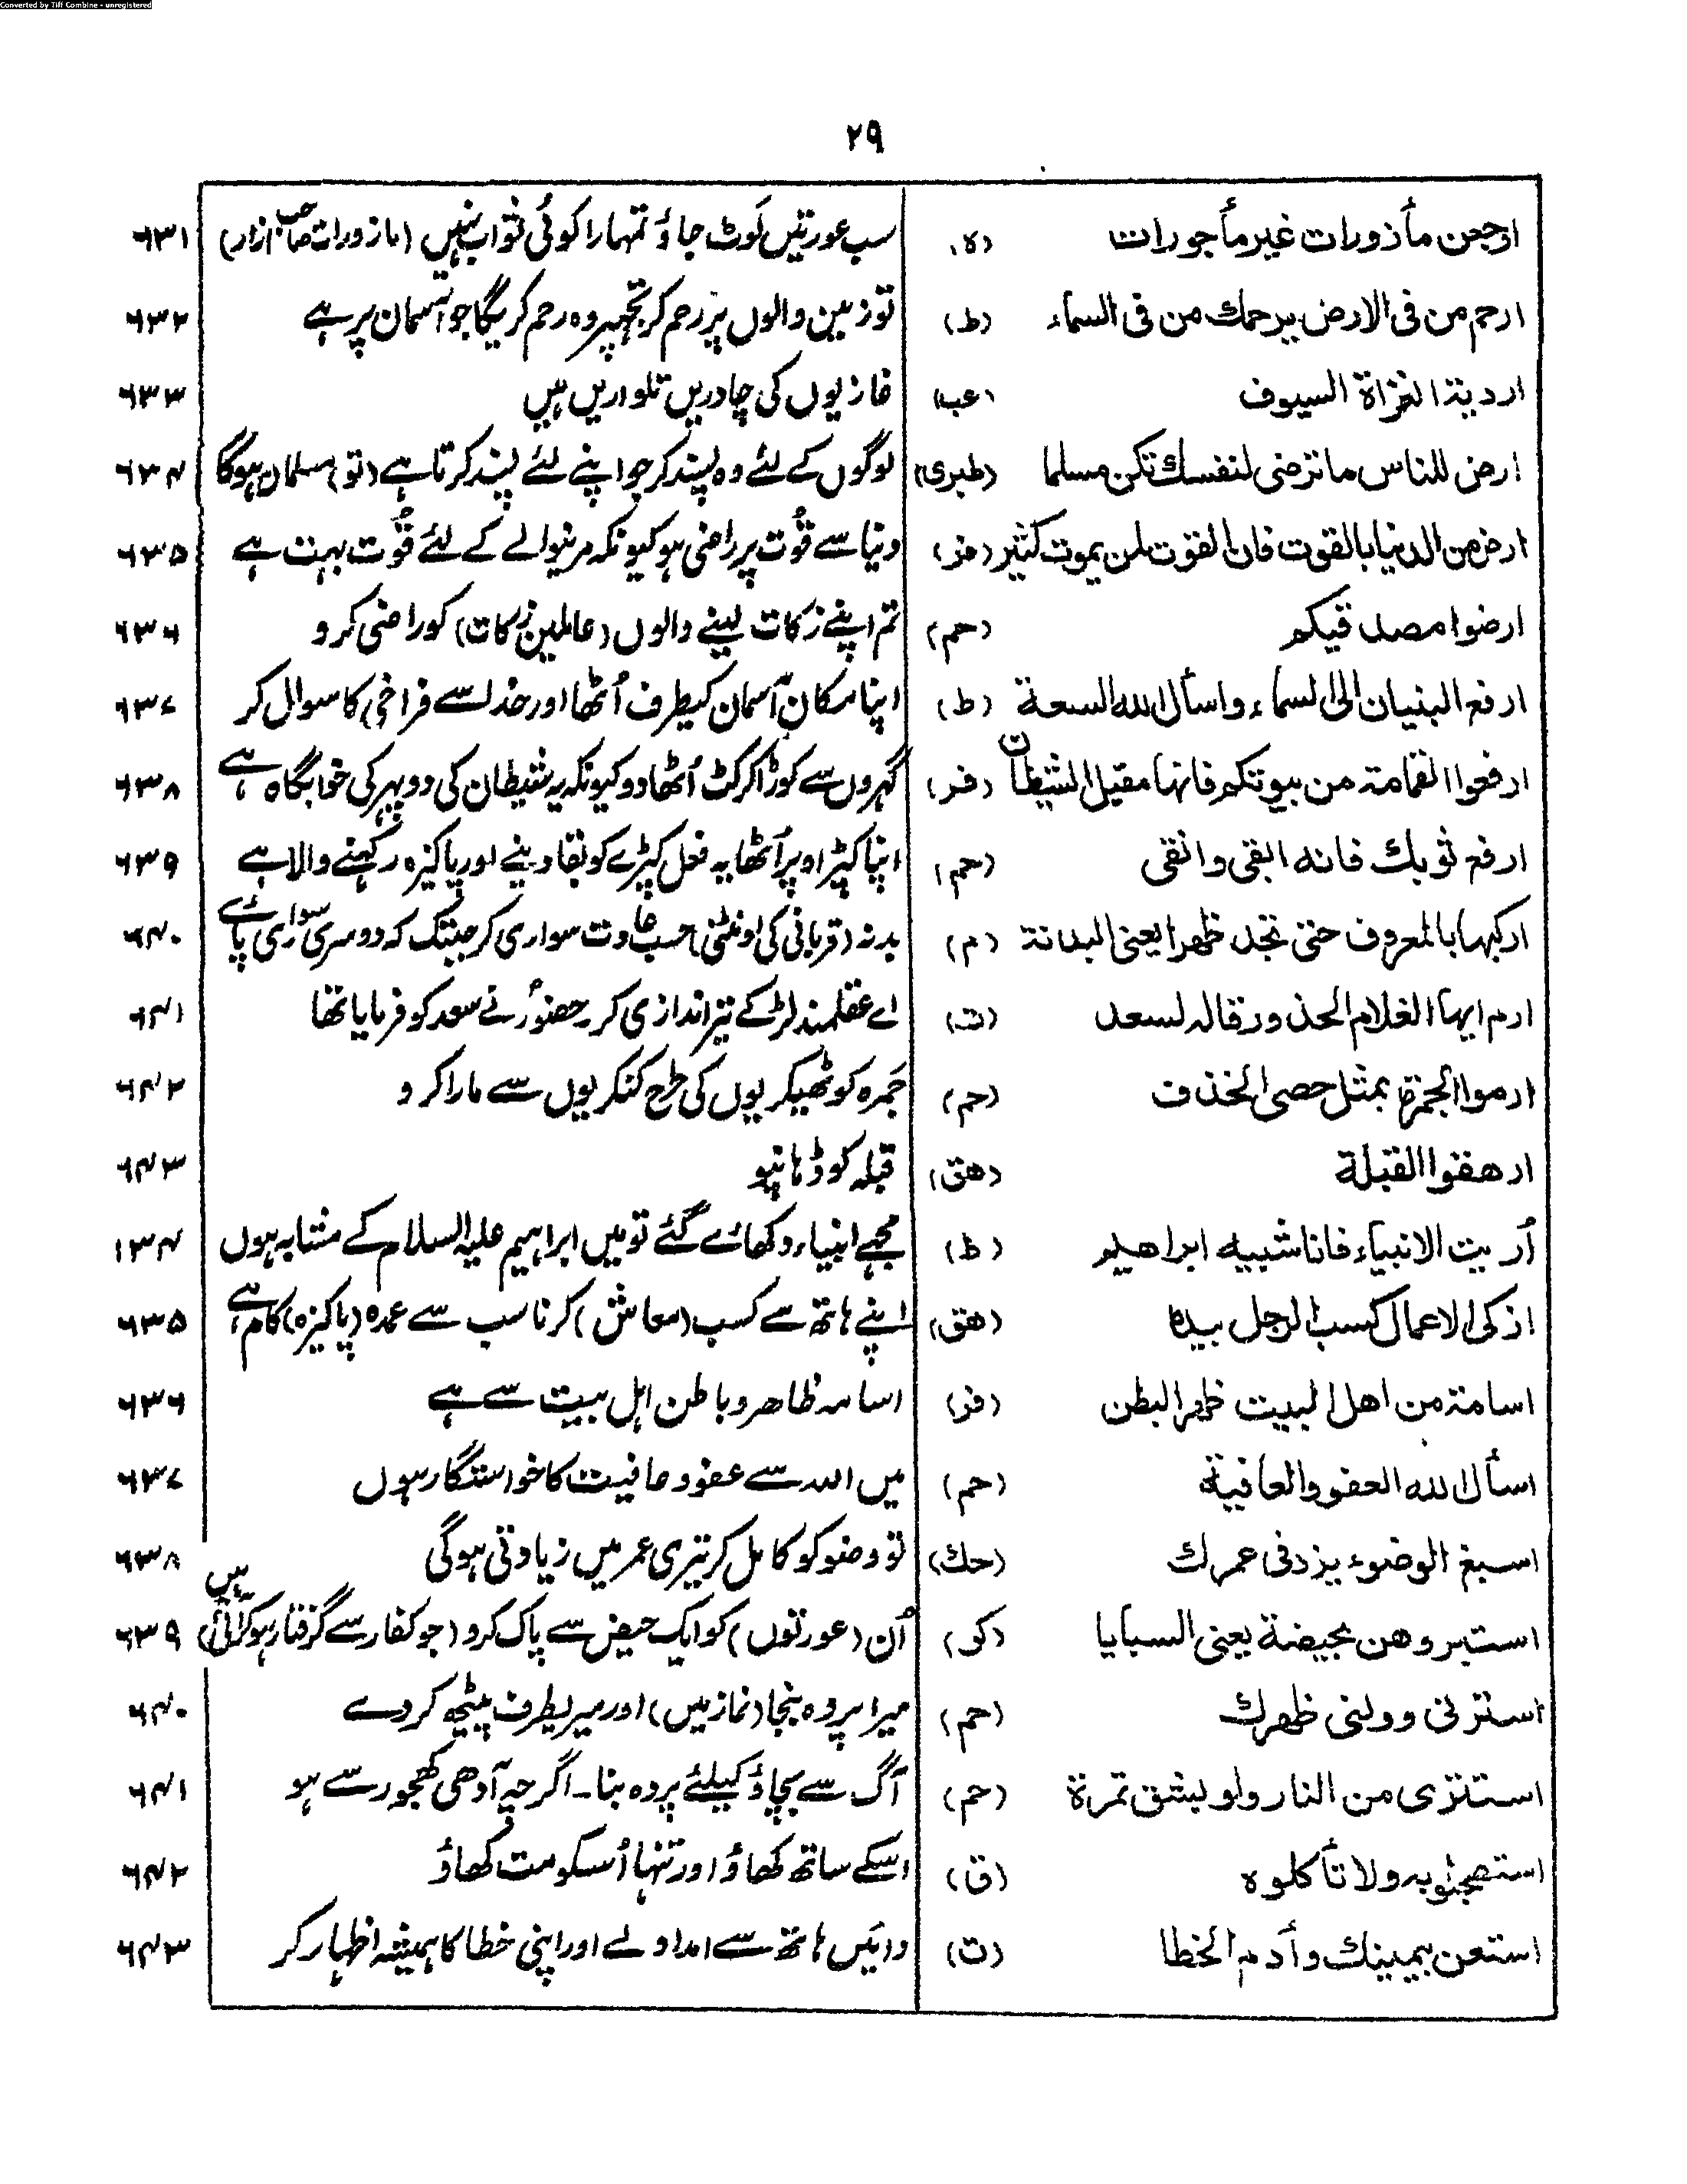 Converted by Tiff Combine - unregistered
۲۹
ارجعن مأزورات غير مأجورات (ہ) سب عورتیں لَوٹ جاؤ تمہارا کوئی ثواب نہیں (مازورات صاحب ازار) ۶۳۱
ارحم من فى الارض يرحمك من فى السماء (ط) تو زمین والوں پر رحم کر تجھپر وہ رحم کریگا جو آسمان پر ہے ۶۳۲
اردية الغزاة السيوف (عب) غازیوں کی چادریں تلواریں ہیں ۶۳۳
ارض للناس ماترضى لنفسك تكن مسلما (طبرى) لوگوں کے لئے وہ پسند کر جو اپنے لئے پسند کرتا ہے (تو) مسلمان ہوگا ۶۳۴
ارض من الدنيا بالقوت فان القوت لمن يموت كثير (فر) دنیا سے قُوت پر راضی ہو کیونکہ مرنیوالے کے لئے قُوت بہت ہے ۶۳۵
ارضوا مصدقيكم (حم) تم اپنے زکات لینے والوں (عاملین زکات) کو راضی کرو ۶۳۶
ارفع البنيان الى السماء واسأل الله السعة (ط) اپنا مکان آسمان کیطرف اُٹھا اور خدا سے فراخی کا سوال کر ۶۳۷
ارفعوا القمامة من بيوتكم فانها مقيل الشيطان (فر) گہروں سے کوڑا کرکٹ اُٹھادو کیونکہ یہ شیطان کی دوپہر کی خوابگاہ ہے ۶۳۸
ارفع ثوبك فانه ابقى وانقى (حم) اپنا کپڑا اوپر اُٹھا یہ فعل کپڑے کو بقا دینے اور پاکیزہ رکہنے والا ہے ۶۳۹
اركبها بالمعروف حتى تجد ظهرا يعنى البدنة (م) بدنہ (قربانی کی اونٹنی) حسب عادت سواری کر جبتک کہ دوسری سواری پائے ۶۴۰
ارم ايها الغلام الحذور قاله لسعد (ت) اے عقلمند لڑکے تیر اندازی کر۔ حضورؐ نے سعد کو فرمایا تھا ۶۴۱
ارموا الجمرة بمثل حصى الخذف (حم) جَمرہ کو ٹھیکریوں کی طرح کنکریوں سے مارا کرو ۶۴۲
ارهقوا القبلة (هق) قبلہ کو ڈہانپو ۶۴۳
أريت الانبياء فانا شبيه ابراهيم (ط) مجہے انبیاء دکھائے گئے تو میں ابراہیم علیہ السلام کے مشابہ ہوں ۱۳۴
ازكى الاعمال كسب الرجل بيده (هق) اپنے ہاتھ سے کسب (معاش) کرنا سب سے عمدہ (پاکیزہ) کام ہے ۶۳۵
اسامة من اهل البيت ظهر البطن (فر) اسامہ ظاہر و باطن اہل بیت سے ہے ۶۳۶
اسأل الله العفو والعافية (حم) میں اللہ سے عفو و عافیت کا خواستگار ہوں ۶۳۷
اسبغ الوضوء يزد فى عمرك (حك) تو وضو کو کامل کر تیری عمر میں زیادتی ہوگی ۶۳۸
استبروهن بحيضة يعنى السبايا (كر) اُن (عورتوں) کو ایک حیض سے پاک کرو (جو کفار سے گرفتار ہوکر آئی) ہیں ۶۳۹
استرنى وولنى ظهرك (حم) میرا پردہ بنجا (نماز میں) اور میریطرف پیٹھ کردے ۶۴۰
استترى من النار ولو بشق تمرة (حم) آگ سے بچاؤ کیلئے پردہ بنا۔ اگرچہ آدھی کھجور سے ہو ۶۴۱
استصبحوا به ولا تأكلوه (ق) اسکے ساتھ کھاؤ اور تنہا اُسکو مت کھاؤ ۶۴۲
استعن بيمينك وأدم الخطا (ت) دائیں ہاتھ سے امداد لے اور اپنی خطا کا ہمیشہ اظہار کر ۶۴۳